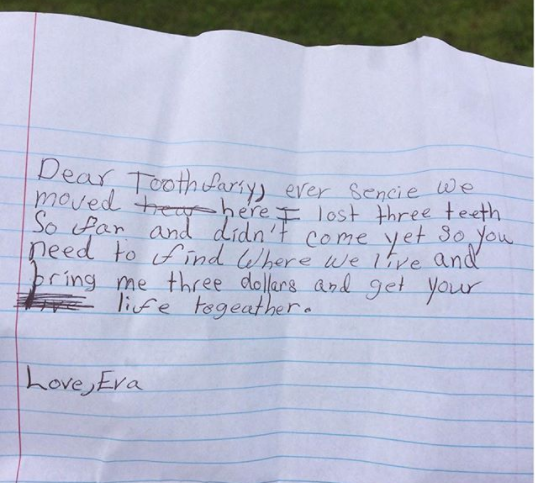 Dear Toothfariy, ever sencie we
moved hear here I lost three teeth
So far and didn't come yet so you
need to find where we live and
bring me three dollars and get your
live life togeather.
Love, Eva